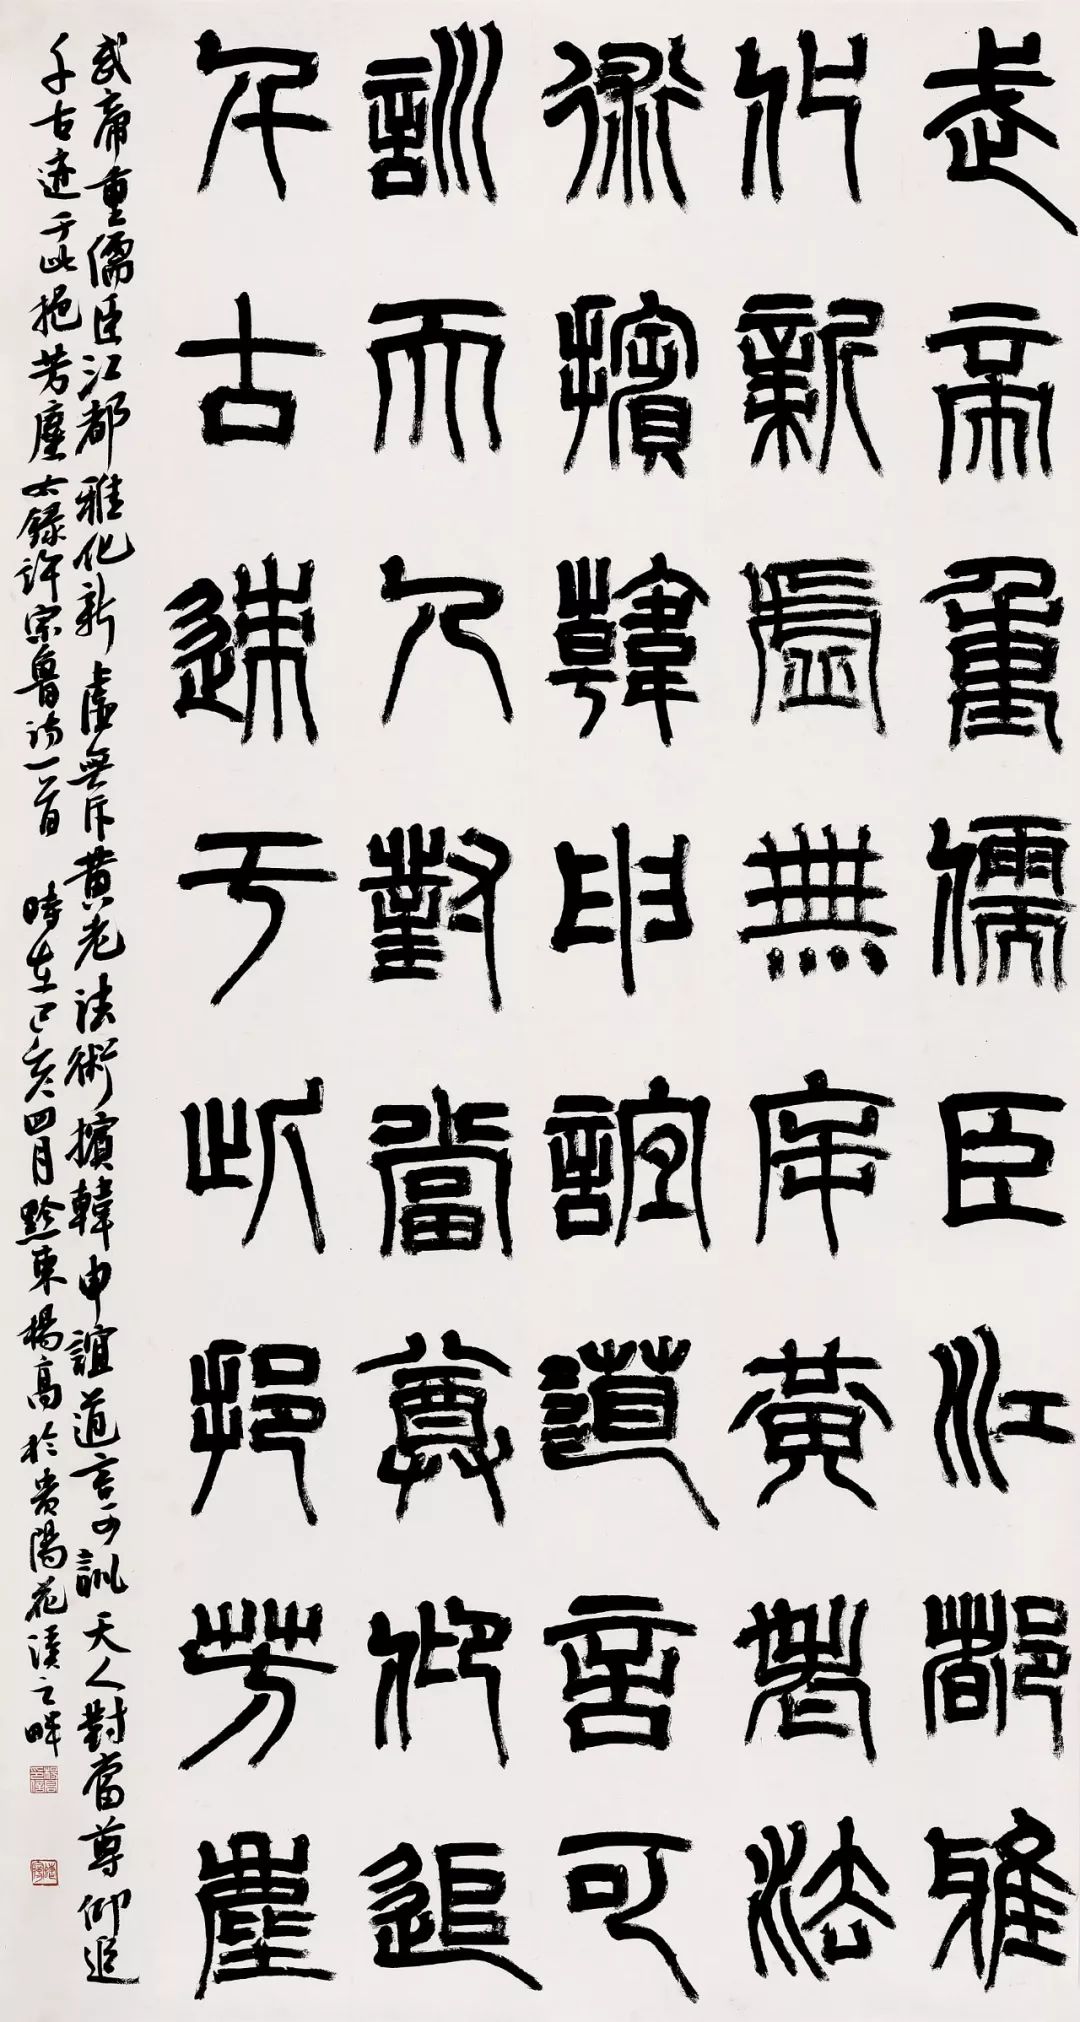 武帝重儒臣江都雅
化新虛無斥黃老法
術擯韓申誼道言可
訓天人對當尊仰追
千古迹于此挹芳塵
武帝重儒臣江都雅化新虛無斥黃老法術擯韓申誼道言可訓天人對當尊仰追
千古迹于此挹芳塵右錄許宗魯詩一首 時在己亥四月黔東楊高於貴陽花溪之畔